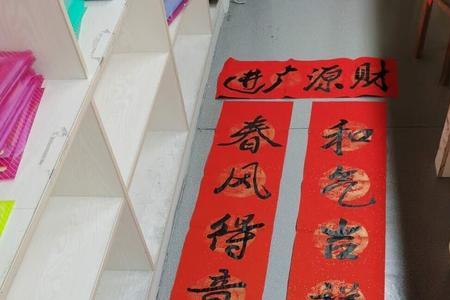 财源广进
和气吉祥
春风得意